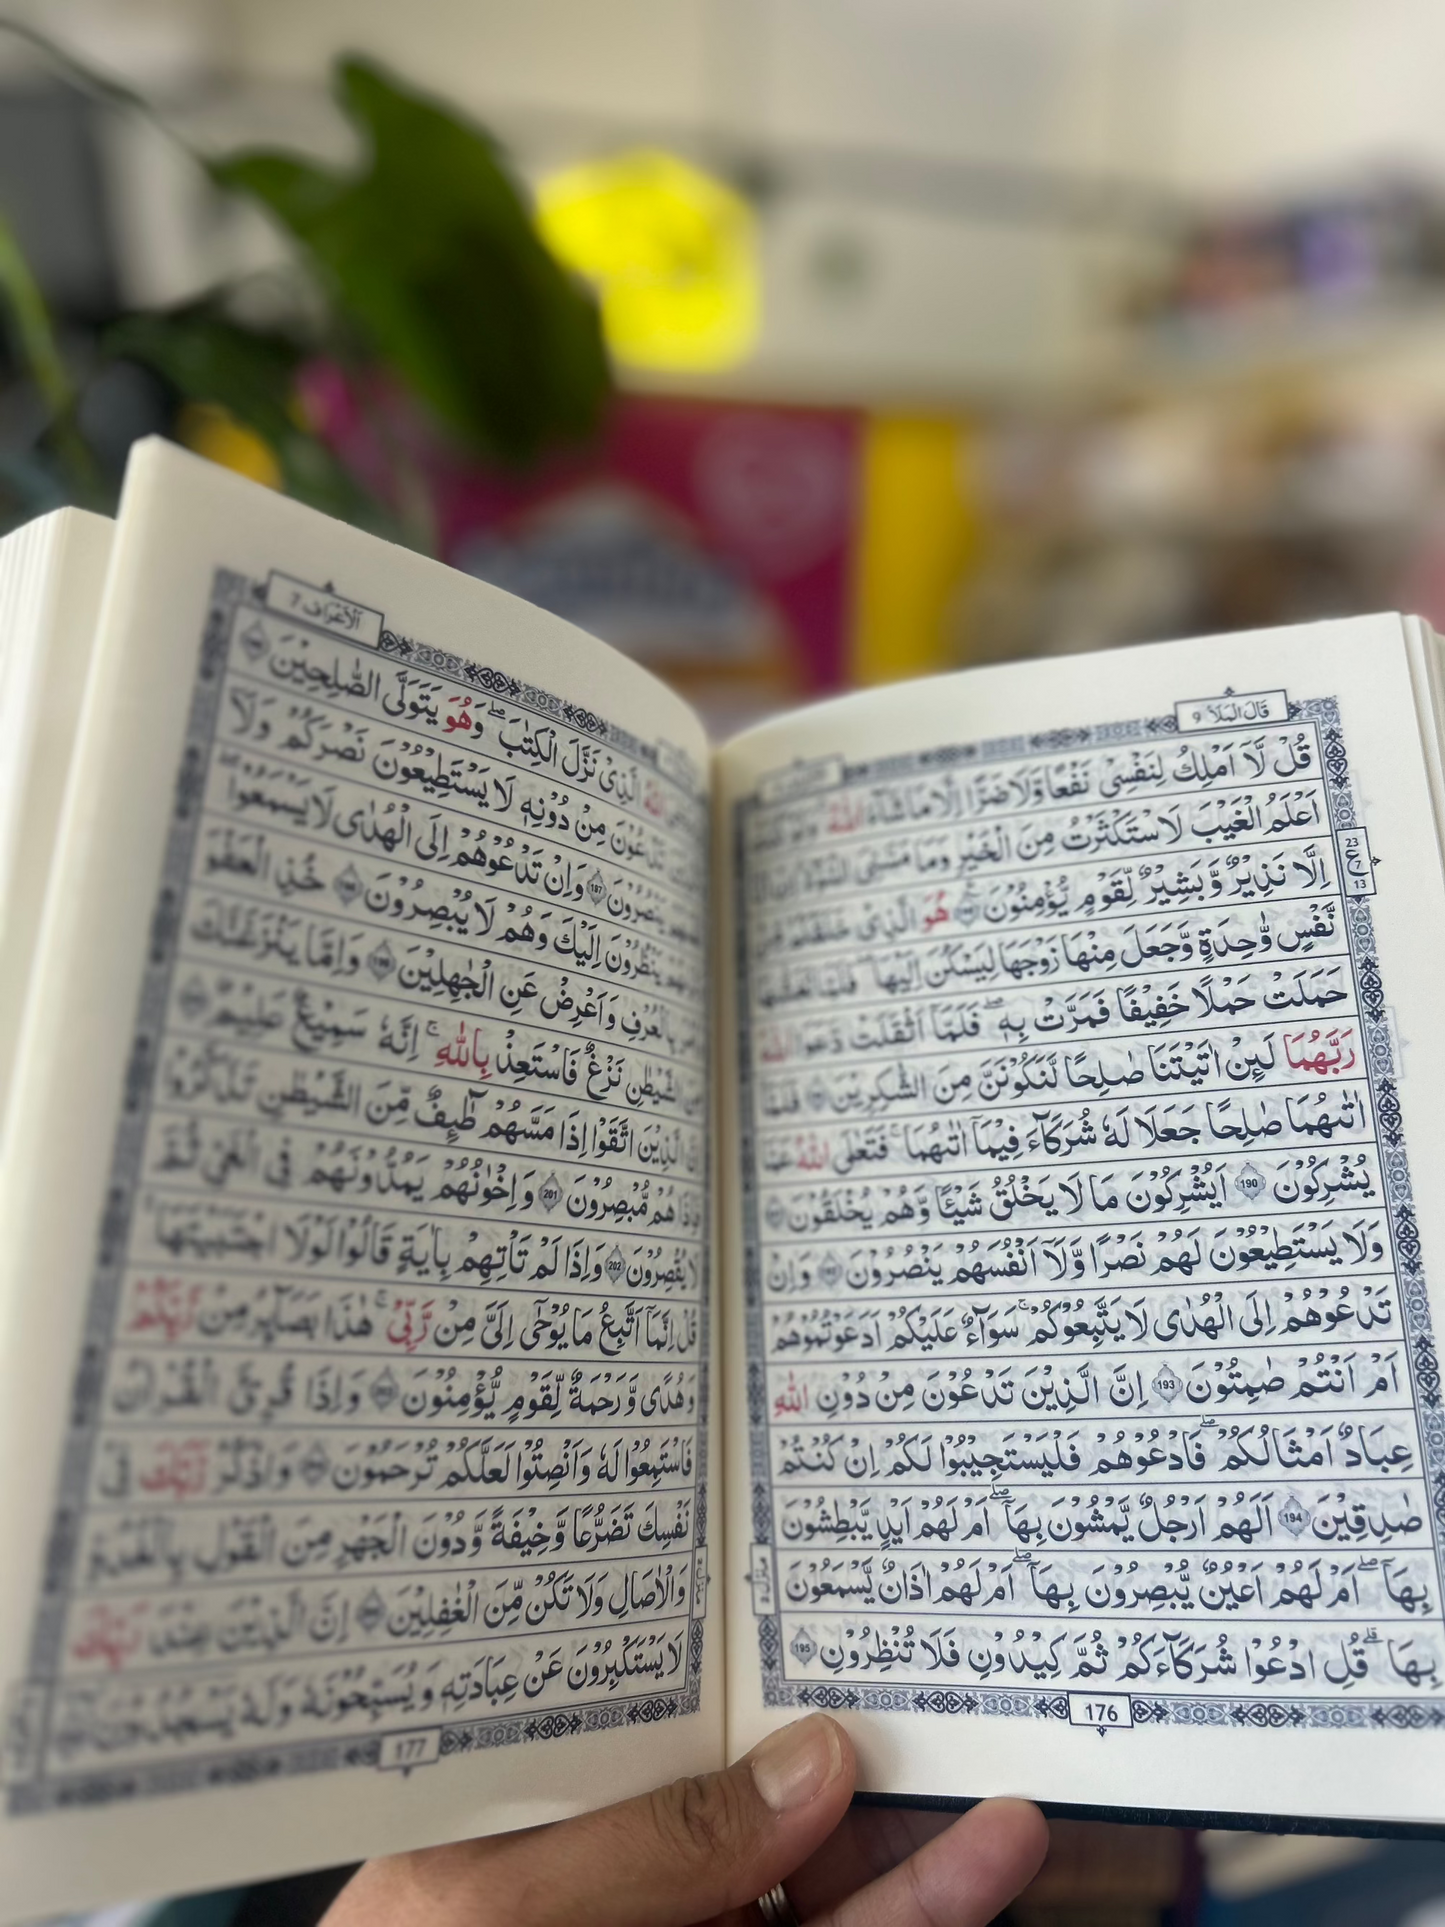 قَالَ الْمَلَاُ ٩
قُلْ لَّاۤ اَمْلِكُ لِنَفْسِیْ نَفْعًا وَّلَا ضَرًّا اِلَّا مَا شَآءَ اللّٰهُ
اَعْلَمُ الْغَیْبَ لَاسْتَكْثَرْتُ مِنَ الْخَیْرِ وَمَا مَسَّنِیَ السُّوْٓءُ
23
ع
7
13
اِلَّا نَذِیْرٌ وَّبَشِیْرٌ لِّقَوْمٍ یُّؤْمِنُوْنَ هُوَ الَّذِیْ خَلَقَكُمْ
نَّفْسٍ وَّاحِدَةٍ وَّجَعَلَ مِنْهَا زَوْجَهَا لِیَسْكُنَ اِلَیْهَا ۚ فَلَمَّا تَغَشّٰىهَا
حَمَلَتْ حَمْلًا خَفِیْفًا فَمَرَّتْ بِهٖ ۚ فَلَمَّاۤ اَثْقَلَتْ دَّعَوَا اللّٰهَ
رَبَّهُمَا لَىِٕنْ اٰتَیْتَنَا صَالِحًا لَّنَكُوْنَنَّ مِنَ الشّٰكِرِیْنَ فَلَمَّاۤ
اٰتٰىهُمَا صَالِحًا جَعَلَا لَهٗ شُرَكَآءَ فِیْمَاۤ اٰتٰىهُمَا ۚ فَتَعٰلَى اللّٰهُ عَمَّا
یُشْرِكُوْنَ 190 اَیُشْرِكُوْنَ مَا لَا یَخْلُقُ شَیْـًٔا وَّهُمْ یُخْلَقُوْنَ
وَلَا یَسْتَطِیْعُوْنَ لَهُمْ نَصْرًا وَّلَاۤ اَنْفُسَهُمْ یَنْصُرُوْنَ وَاِنْ
تَدْعُوْهُمْ اِلَى الْهُدٰى لَا یَتَّبِعُوْكُمْ ۚ سَوَآءٌ عَلَیْكُمْ اَدَعَوْتُمُوْهُمْ
اَمْ اَنْتُمْ صَامِتُوْنَ 193 اِنَّ الَّذِیْنَ تَدْعُوْنَ مِنْ دُوْنِ اللّٰهِ
عِبَادٌ اَمْثَالُكُمْ ۖ فَادْعُوْهُمْ فَلْیَسْتَجِیْبُوْا لَكُمْ اِنْ كُنْتُمْ
صٰدِقِیْنَ 194 اَلَهُمْ اَرْجُلٌ یَّمْشُوْنَ بِهَاۤ ۖ اَمْ لَهُمْ اَیْدٍ یَّبْطِشُوْنَ
بِهَاۤ ۖ اَمْ لَهُمْ اَعْیُنٌ یُّبْصِرُوْنَ بِهَاۤ ۖ اَمْ لَهُمْ اٰذَانٌ یَّسْمَعُوْنَ
بِهَا ۗ قُلِ ادْعُوْا شُرَكَآءَكُمْ ثُمَّ كِیْدُوْنِ فَلَا تُنْظِرُوْنِ 195
176
اَلْاَعْرَاف 7
اللّٰهُ الَّذِیْ نَزَّلَ الْكِتٰبَ ۖ وَهُوَ یَتَوَلَّى الصّٰلِحِیْنَ
تَدْعُوْنَ مِنْ دُوْنِهٖ لَا یَسْتَطِیْعُوْنَ نَصْرَكُمْ وَلَاۤ
یَنْصُرُوْنَ 197 وَاِنْ تَدْعُوْهُمْ اِلَى الْهُدٰى لَا یَسْمَعُوْا
یَنْظُرُوْنَ اِلَیْكَ وَهُمْ لَا یُبْصِرُوْنَ خُذِ الْعَفْوَ
بِالْعُرْفِ وَاَعْرِضْ عَنِ الْجٰهِلِیْنَ وَاِمَّا یَنْزَغَنَّكَ
الشَّیْطٰنِ نَزْغٌ فَاسْتَعِذْ بِاللّٰهِ ۚ اِنَّهٗ سَمِیْعٌ عَلِیْمٌ
الَّذِیْنَ اتَّقَوْا اِذَا مَسَّهُمْ طٰٓىِٕفٌ مِّنَ الشَّیْطٰنِ تَذَكَّرُوْا
فَاِذَا هُمْ مُّبْصِرُوْنَ 201 وَاِخْوَانُهُمْ یَمُدُّوْنَهُمْ فِی الْغَیِّ ثُمَّ
لَا یُقْصِرُوْنَ 202 وَاِذَا لَمْ تَاْتِهِمْ بِاٰیَةٍ قَالُوْا لَوْلَا اجْتَبَیْتَهَا
قُلْ اِنَّمَاۤ اَتَّبِعُ مَا یُوْحٰۤى اِلَیَّ مِنْ رَّبِّیْ ۚ هٰذَا بَصَآىِٕرُ مِنْ رَّبِّكُمْ
وَهُدًى وَّرَحْمَةٌ لِّقَوْمٍ یُّؤْمِنُوْنَ وَاِذَا قُرِئَ الْقُرْاٰنُ
فَاسْتَمِعُوْا لَهٗ وَاَنْصِتُوْا لَعَلَّكُمْ تُرْحَمُوْنَ وَاذْكُرْ رَّبَّكَ فِیْ
نَفْسِكَ تَضَرُّعًا وَّخِیْفَةً وَّدُوْنَ الْجَهْرِ مِنَ الْقَوْلِ بِالْغُدُوِّ
وَالْاٰصَالِ وَلَا تَكُنْ مِّنَ الْغٰفِلِیْنَ اِنَّ الَّذِیْنَ عِنْدَ رَبِّكَ
لَا یَسْتَكْبِرُوْنَ عَنْ عِبَادَتِهٖ وَیُسَبِّحُوْنَهٗ وَلَهٗ یَسْجُدُوْنَ
177